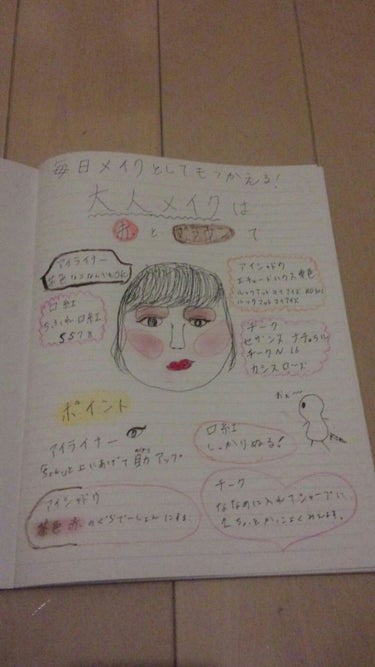 毎日メイクとしてもつかえる!
大人メイクは
赤 と ブラウン で
アイライナー
茶色 なんでもOK
アイシャドウ
エチュードハウス 茶色
ルックアットマイアイズ
ルックアットマイアイズ
口紅
ちふれ口紅
557
チーク
セザンヌ ナチュラル
チークN 16
カシスローズ
ポイント
おぉ…
アイライナー
ちょっと上にあげて アップ
口紅
しっかりぬる!
アイシャドウ
茶色 赤 のぐらでーしょんにする
チーク
ななめに入れてシャープに